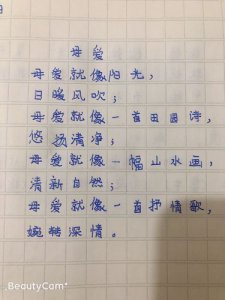 母爱
母爱就像阳光，
日暖风吹；
母爱就像一首田园诗，
悠扬清净；
母爱就像一幅山水画，
清新自然；
母爱就像一首抒情歌，
婉转深情。
BeautyCam*